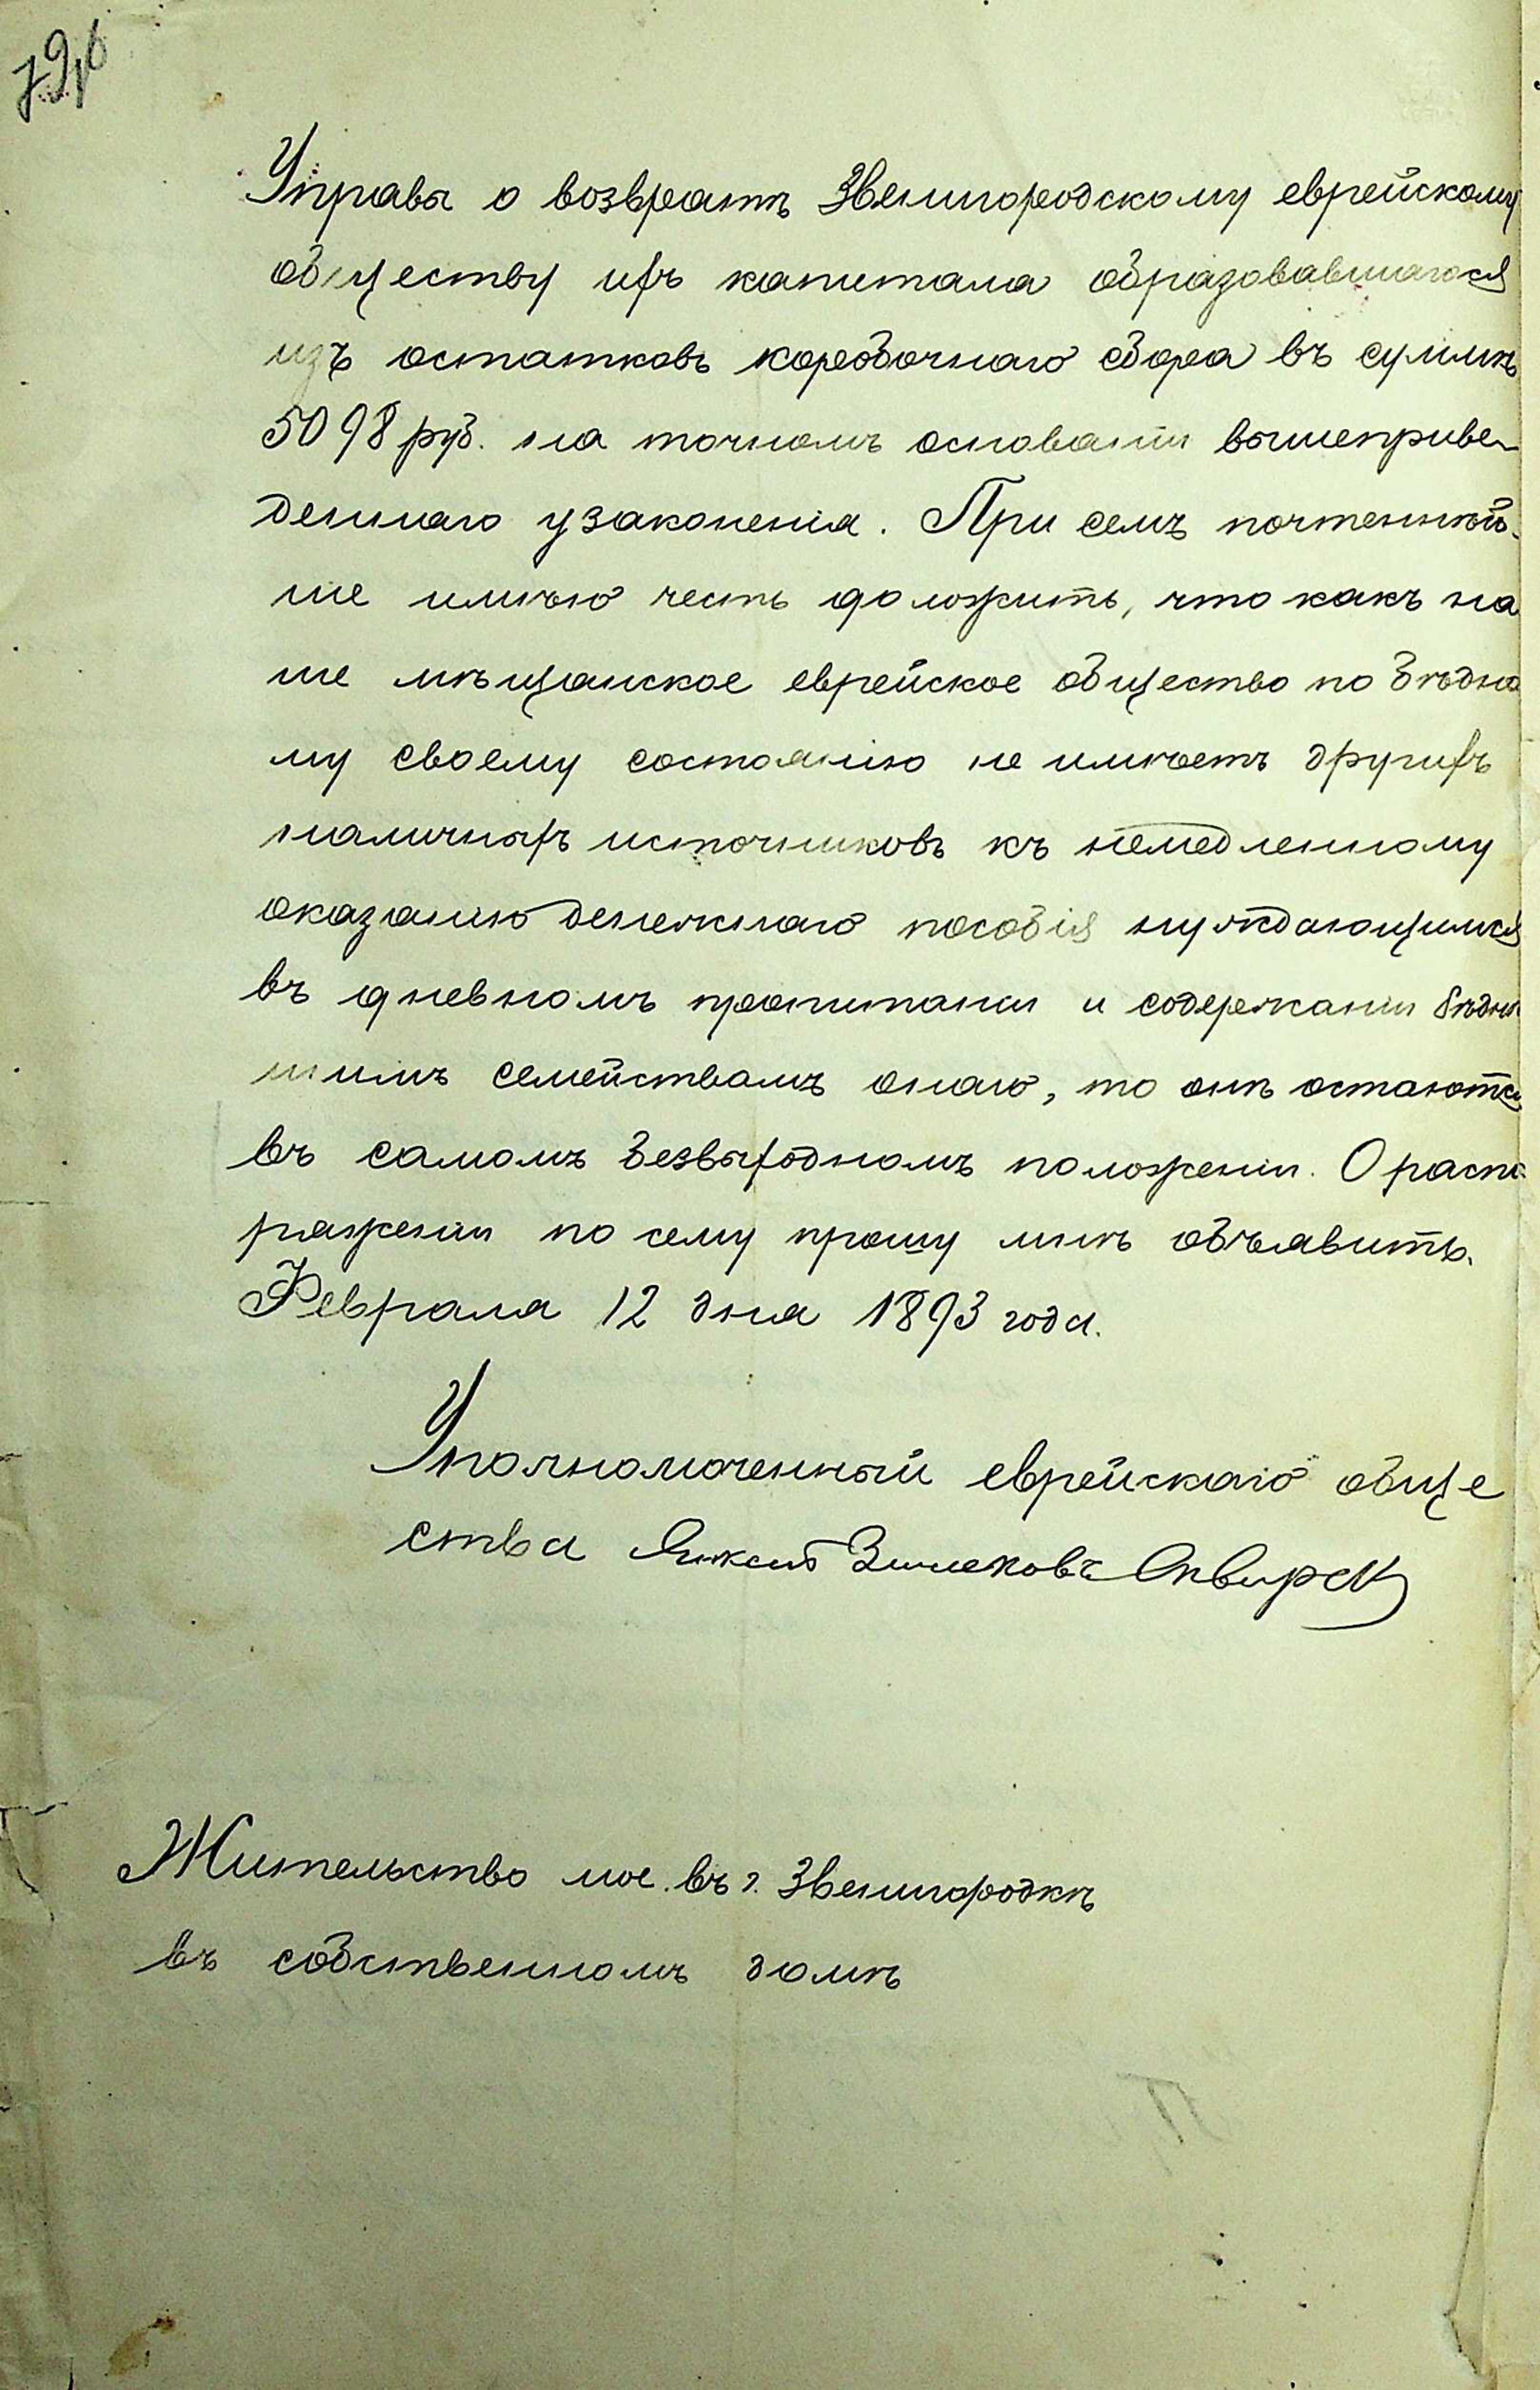 Управы о возвратѣ Звенигородскому еврейскому
обществу ихъ капитала образовавшагося
изъ остатковъ коробочнаго сбора въ суммѣ
5098 руб. на точномъ основаніи вышеприве-
деннаго узаконенія. При семъ почтеннѣй-
ше имѣю честь доложить, что какъ на
ше мѣщанское еврейское общество по бѣдно
му своему состоянію не имѣетъ другихъ
наличныхъ источниковъ къ немедленному
оказанію денежнаго пособія нуждающимся
въ дневномъ пропитаніи и содержаніи бѣднѣ
шимъ семействамъ онаго, то онѣ остаются
въ самомъ безвыходномъ положеніи. О распо
ряженіи по сему прошу мнѣ объявить.
Февраля 12 дня 1893 года.
Уполномоченный еврейскаго обще
ства
Жительство мое въ г. Звенигородкѣ
въ собственномъ домѣ